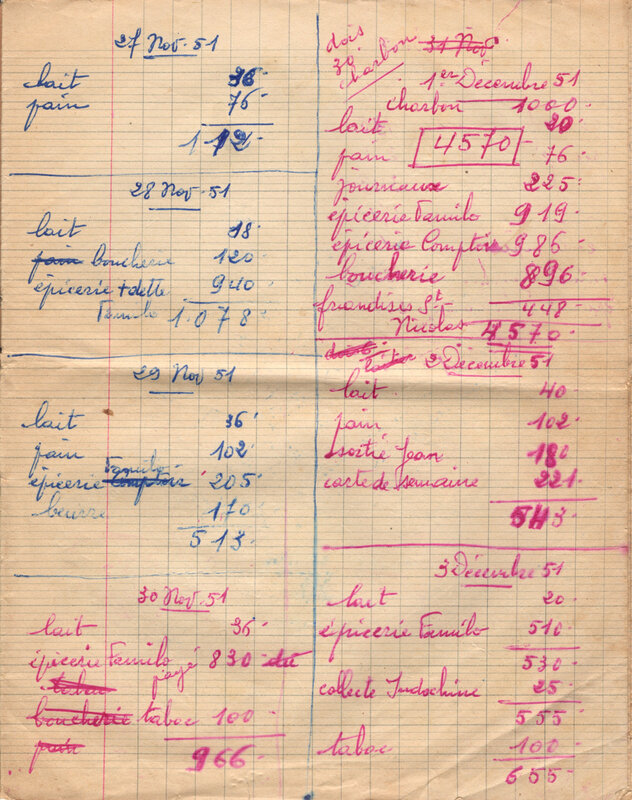 27 Nov. 51
lait 36
pain 76
112
28 Nov. 51
lait 18
pain boucherie 120
épicerie + dette 940
Familo 1.078
29 Nov 51
lait 36
pain 102
Familo
épicerie Comptoir 205
beurre 170
513
30 Nov. 51
lait 36
épicerie Familo 830 dû
tabac payé
boucherie tabac 100
pain
966
dois
30 charbon
31 Nov
1er Décembre 51
charbon 1000
lait 20
4570
pain 76
journaux 225
épicerie Familo 919
épicerie Comptoir 986
boucherie 896
friandises St- 448
Nicolas 4570
2 Décembre 51
lait 40
pain 102
sortie Jean 180
carte de semaine 221
543
3 Décembre 51
lait 20
épicerie Familo 510
530
collecte Indochine 25
555
tabac 100
655